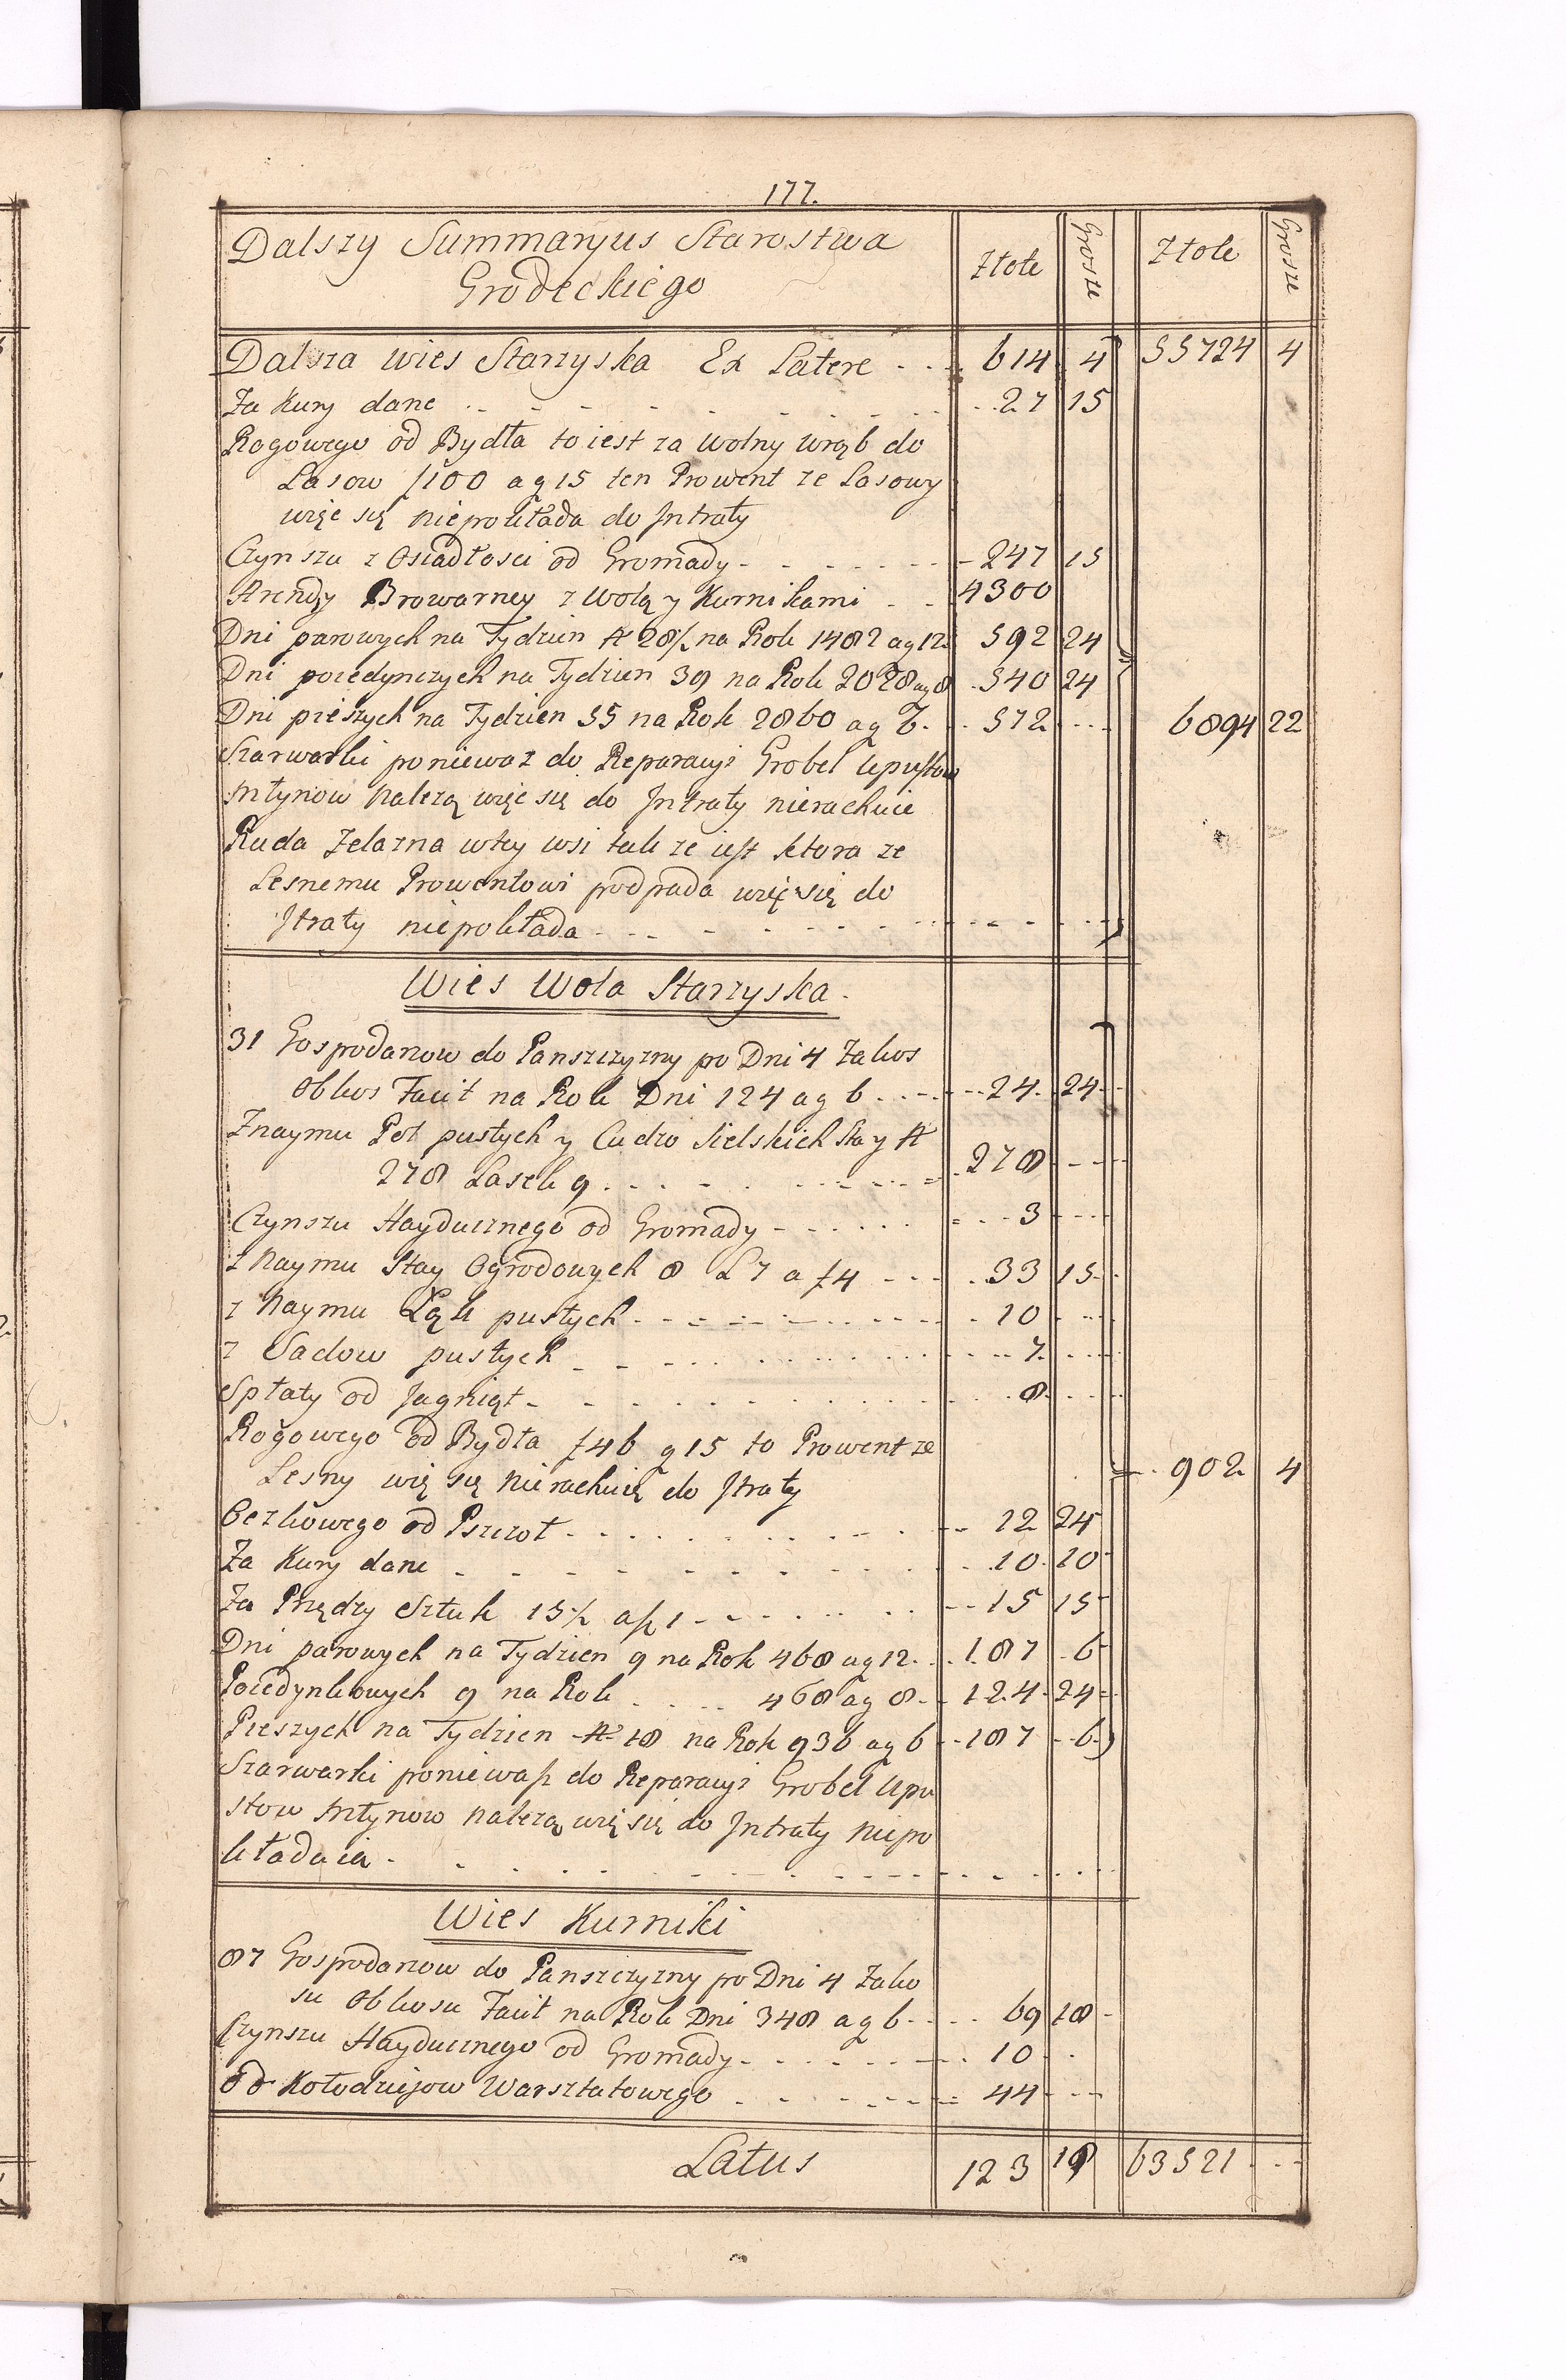 177.
Dalszy Summaryus Starostwa
Grodeckiego
Złote Grosze Złote Grosze
Dalsza wies Starzyska Ex Latere 614 4 55724 4
Za Kury dane 27 15
Rogowego od Bydła to iest za wolny wrąb do
Lasow f100 a g 15 ten Prowent ze Lasowy
więc się niepokłada do Intraty
Czynszu z Osiadłosci od Gromady 247 15
Arendy Browarney z Wolą y Kurnikami 4300
Dni parowych na Tydzien # 28½ na Rok 1482 a g 12 592 24
Dni poiedynczych na Tydzien 39 na Rok 2028 a g 8 540 24
Dni pieszych na Tydzien 55 na Rok 2860 a g 6 572
6894 22
Szarwarki poniewaz do Reparacyi Grobel Upustow
Młynow należą więc się do Intraty nierachuie
Ruda Zelazna w tey wsi tak ze iest ktora ze
Lesnemu Prowentowi podpada więc się do
Itraty niepokłada
Wies Wola Starzyska
31 Gospodarzow do Panszczyzny po Dni 4 Zakos
Obkos Facit na Rok Dni 124 a g 6 24 24
Znaymu Pol pustych y Cudzo Sielskich Stay #
278 Lasek 9 278
Czynszu Hayducznego od Gromady 3
z Naymu Stay Ogrodowych 8 L 7 a f 4 33 15
z Naymu Łąk pustych 10
z Sadow pustych 7
Spłaty od Jagniąt 8
Rogowego od Bydła f 46 g 15 to Prowent ze
Lesny wię się nierachuię do Itraty
902 4
Oczkowego od Pszczoł 12 24
Za Kury dane 10 10
Za Przędzy Sztuk 15½ a f 1 15 15
Dni parowych na Tydzien 9 na Rok 468 a g 12 187 6
Poiedynkowych 9 na Rok 468 a g 8 124 24
Pieszych na Tydzien # 18 na Rok 936 a g 6 187 6
Szarwarki poniewaß do Reparacyi Grobel Upu
stow Młynow należą wię się do Intraty niepo
kładaią
Wies Kurniki
87 Gospodarzow do Panszczyzny po Dni 4 Zako
su Obkosu Facit na Rok Dni 348 a g 6 69 18
Czynszu Hayducznego od Gromady 10
od Kołodziejow Warsztatowego 44
Latus 123 18 63521